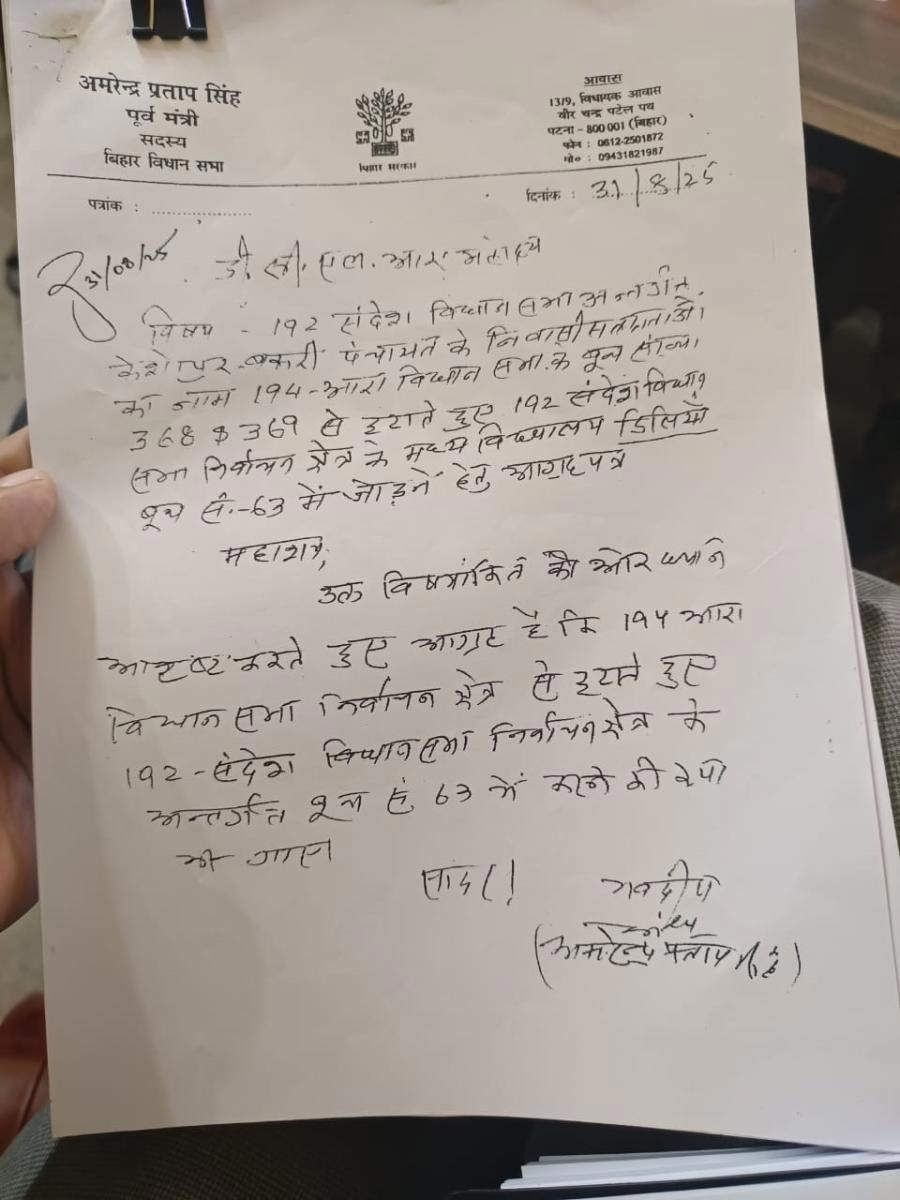 अमरेन्द्र प्रताप सिंह
पूर्व मंत्री
सदस्य
बिहार विधान सभा
बिहार सरकार
आवास
13/9, विधायक आवास
वीर चन्द पटेल पथ
पटना - 800 001 (बिहार)
फोन : 0612-2501872
मो० : 09431821987
पत्रांक : ....................
दिनांक : 31/8/25
31/08/25
डी. सी. एल. आर महोदय
विषय - 192 संदेश विधान सभा अन्तर्गत
केशोपुर बकरी पंचायत के निवासी मतदाताओं
का नाम 194-आरा विधान सभा के बूथ संख्या
368 & 369 से हटाते हुए 192 संदेश विधान
सभा निर्वाचन क्षेत्र के मध्य विद्यालय डिलियाँ
बूथ सं.-63 में जोड़ने हेतु आग्रह पत्र
महाशय,
उक्त विषयांकित की ओर ध्यान
आकृष्ट करते हुए आग्रह है कि 194 आरा
विधान सभा निर्वाचन क्षेत्र से हटाते हुए
192-संदेश विधान सभा निर्वाचन क्षेत्र के
अन्तर्गत बूथ सं. 63 में करने की कृपा
की जाए
सादर! भवदीय
(अमरेन्द्र प्रताप सिंह)